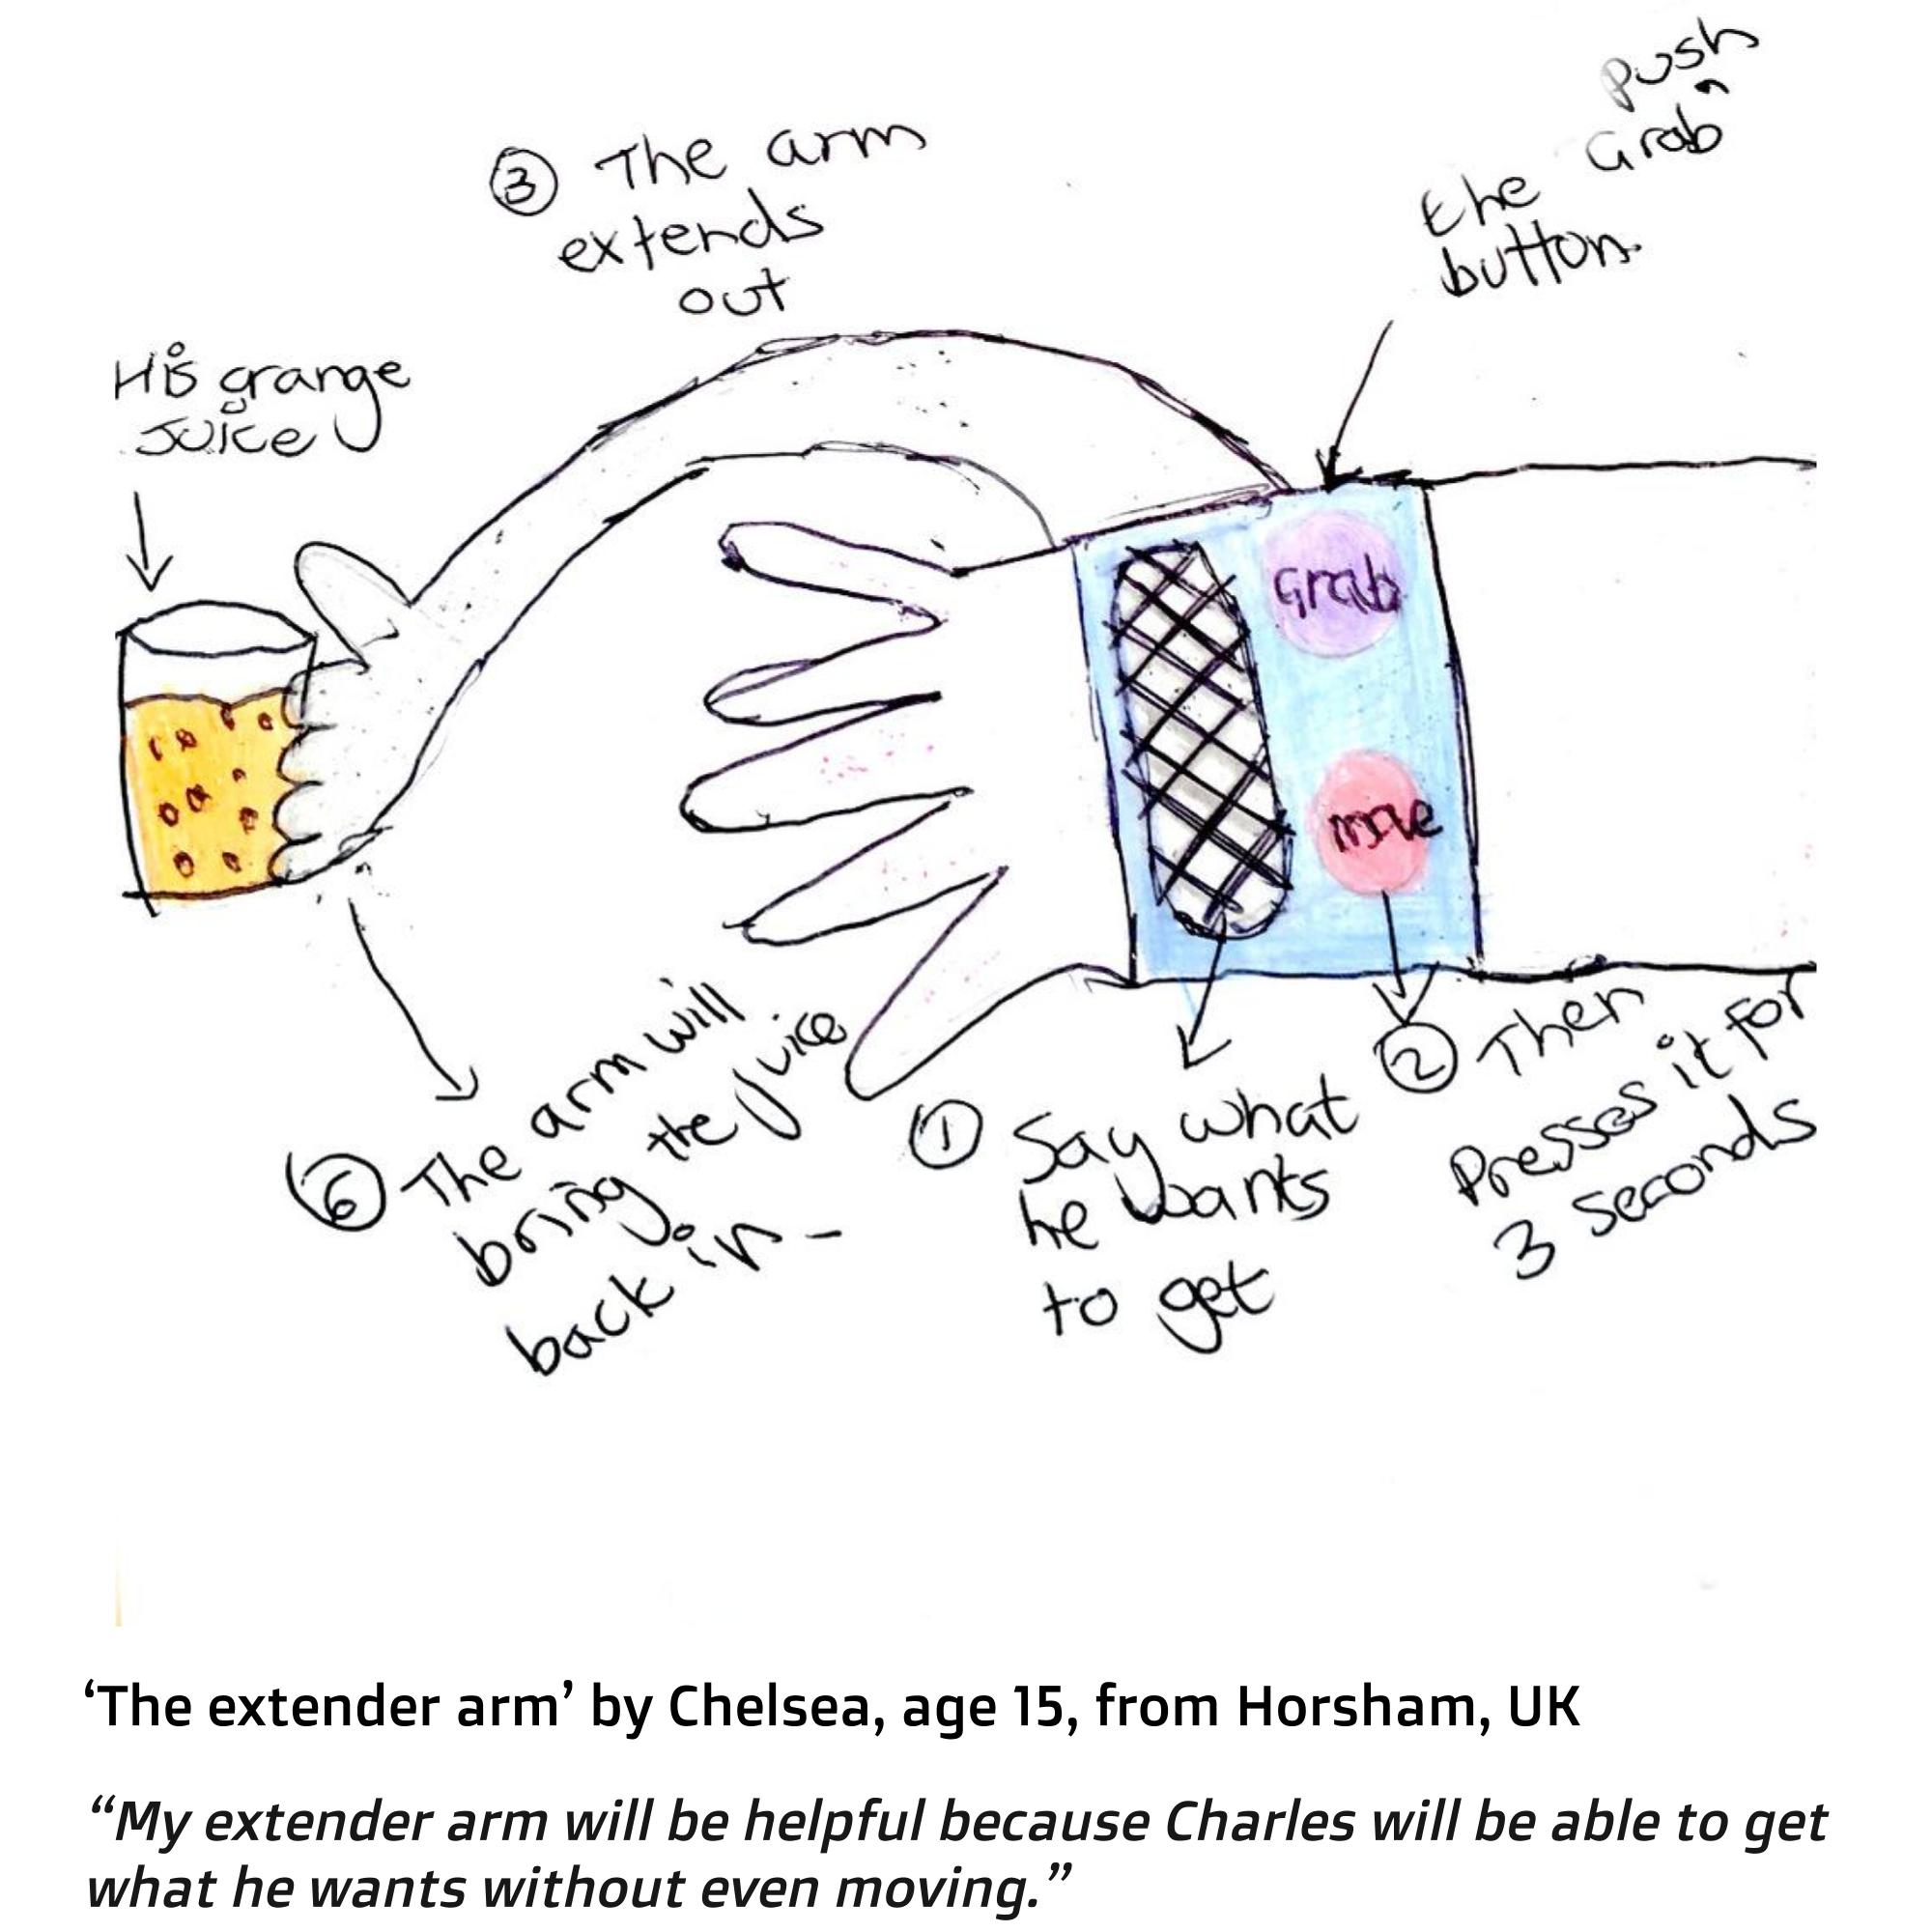 push
the Grab
button
③ The arm
extends
out
His orange
Juice
Grab
move
① Say what
he wants
to get
② Then
Presses it for
3 seconds
⑥ The arm will
bring the juice
back in -
‘The extender arm’ by Chelsea, age 15, from Horsham, UK
“My extender arm will be helpful because Charles will be able to get
what he wants without even moving.”